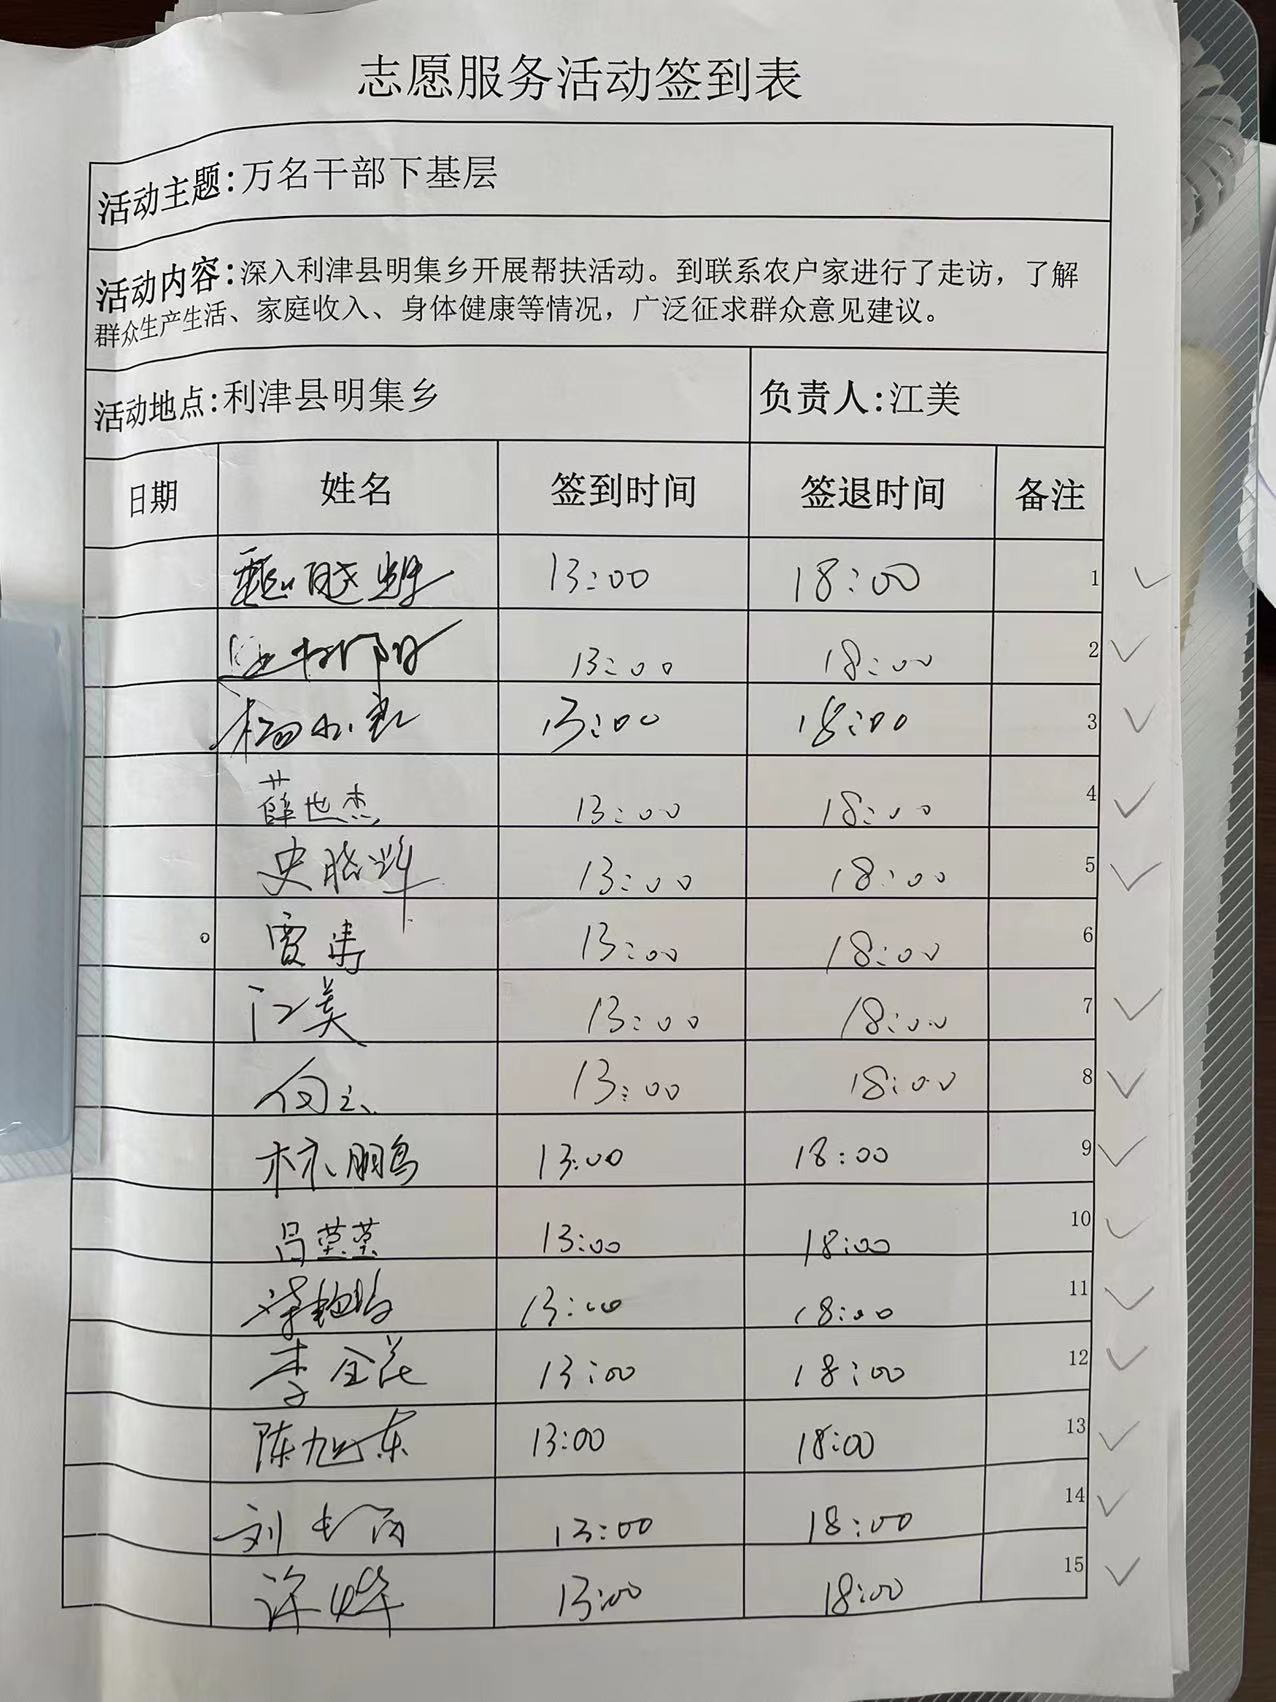 志愿服务活动签到表
活动主题:万名干部下基层
活动内容:深入利津县明集乡开展帮扶活动。到联系农户家进行了走访，了解
群众生产生活、家庭收入、身体健康等情况，广泛征求群众意见建议。
活动地点:利津县明集乡 负责人:江美
日期 姓名 签到时间 签退时间 备注
13:00 18:00 1
13:00 18:00 2
13:00 18:00 3
薛世杰 13:00 18:00 4
史晓辉 13:00 18:00 5
13:00 18:00 6
江美 13:00 18:00 7
13:00 18:00 8
林鹏 13:00 18:00 9
吕莹莹 13:00 18:00 10
13:00 18:00 11
李全花 13:00 18:00 12
陈旭东 13:00 18:00 13
刘 13:00 18:00 14
许 13:00 18:00 15